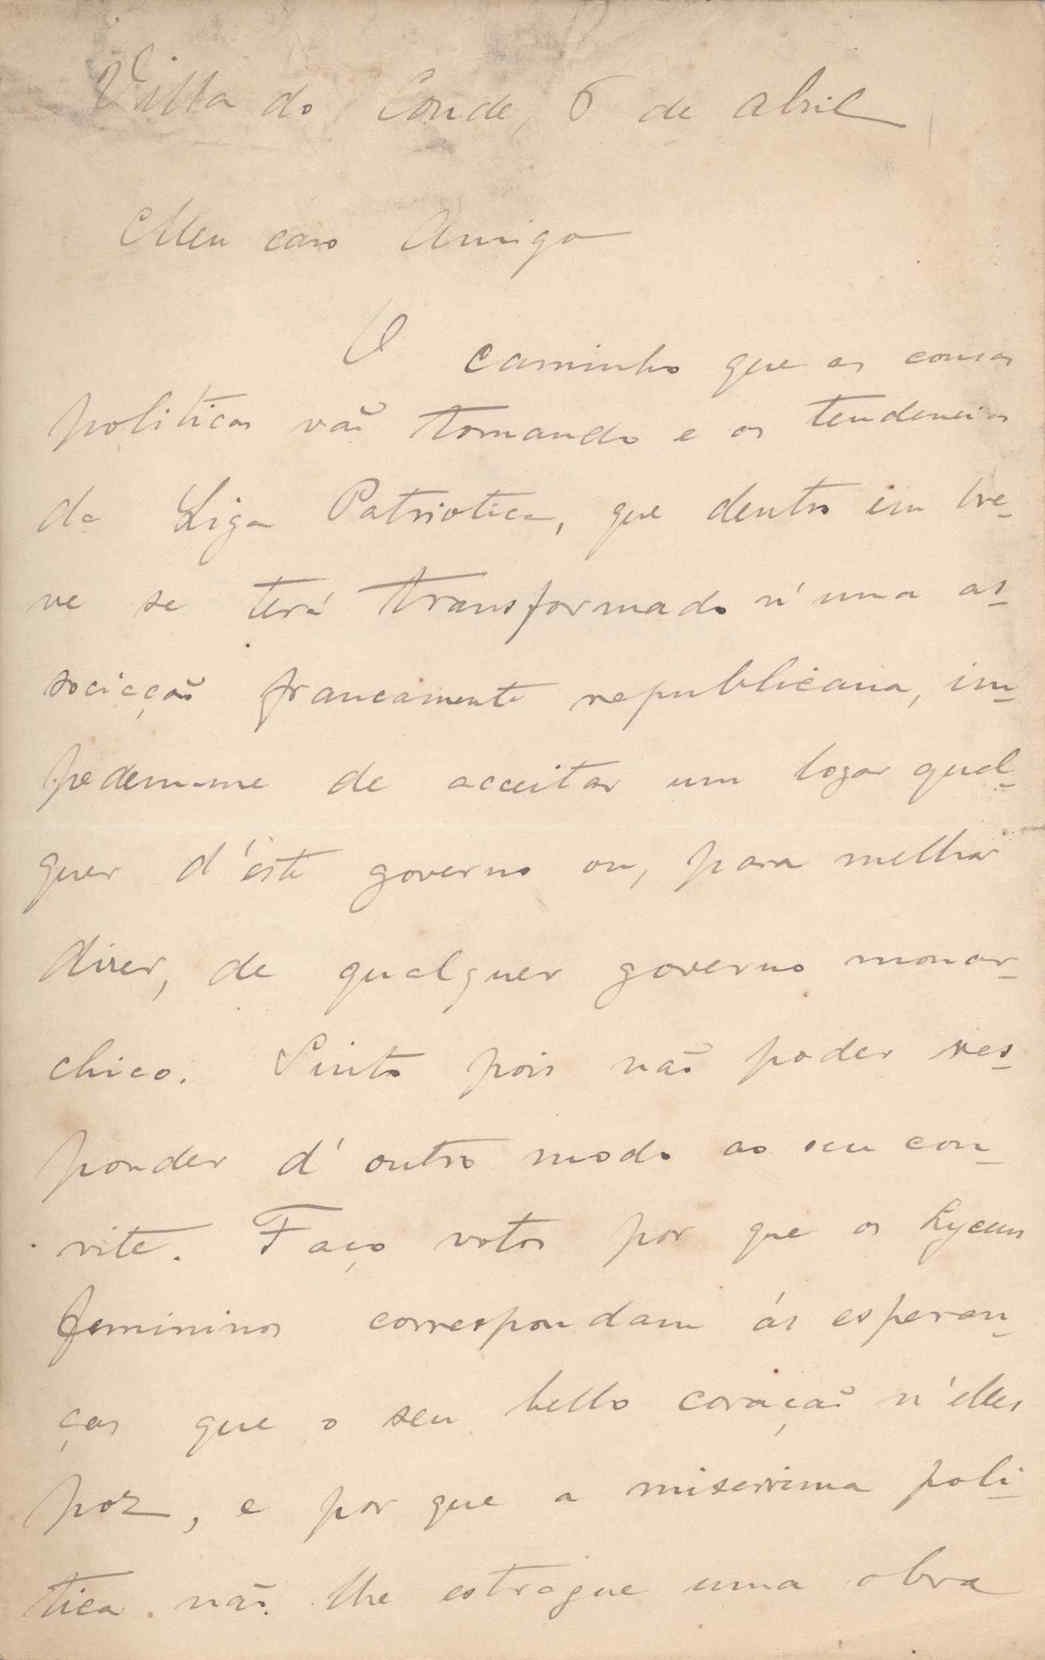 Villa do Conde, 6 de abril
Meu caro Amigo
O caminho que as cousas
politicas vão tomando e as tendencias
da Liga Patriotica, que dentro em bre-
ve se terá transformado n'uma as-
sociação francamente republicana, im-
pedem-me de acceitar um logar qual-
quer d'este governo ou, para melhor
dizer, de qualquer governo monar-
chico. Sinto pois não poder res-
ponder d'outro modo ao seu con-
vite. Faço votos por que os Lyceus
femininos correspondam ás esperan-
ças que o seu bello coração n'elles
poz, e por que a miserrima poli-
tica não lhe estrague uma obra